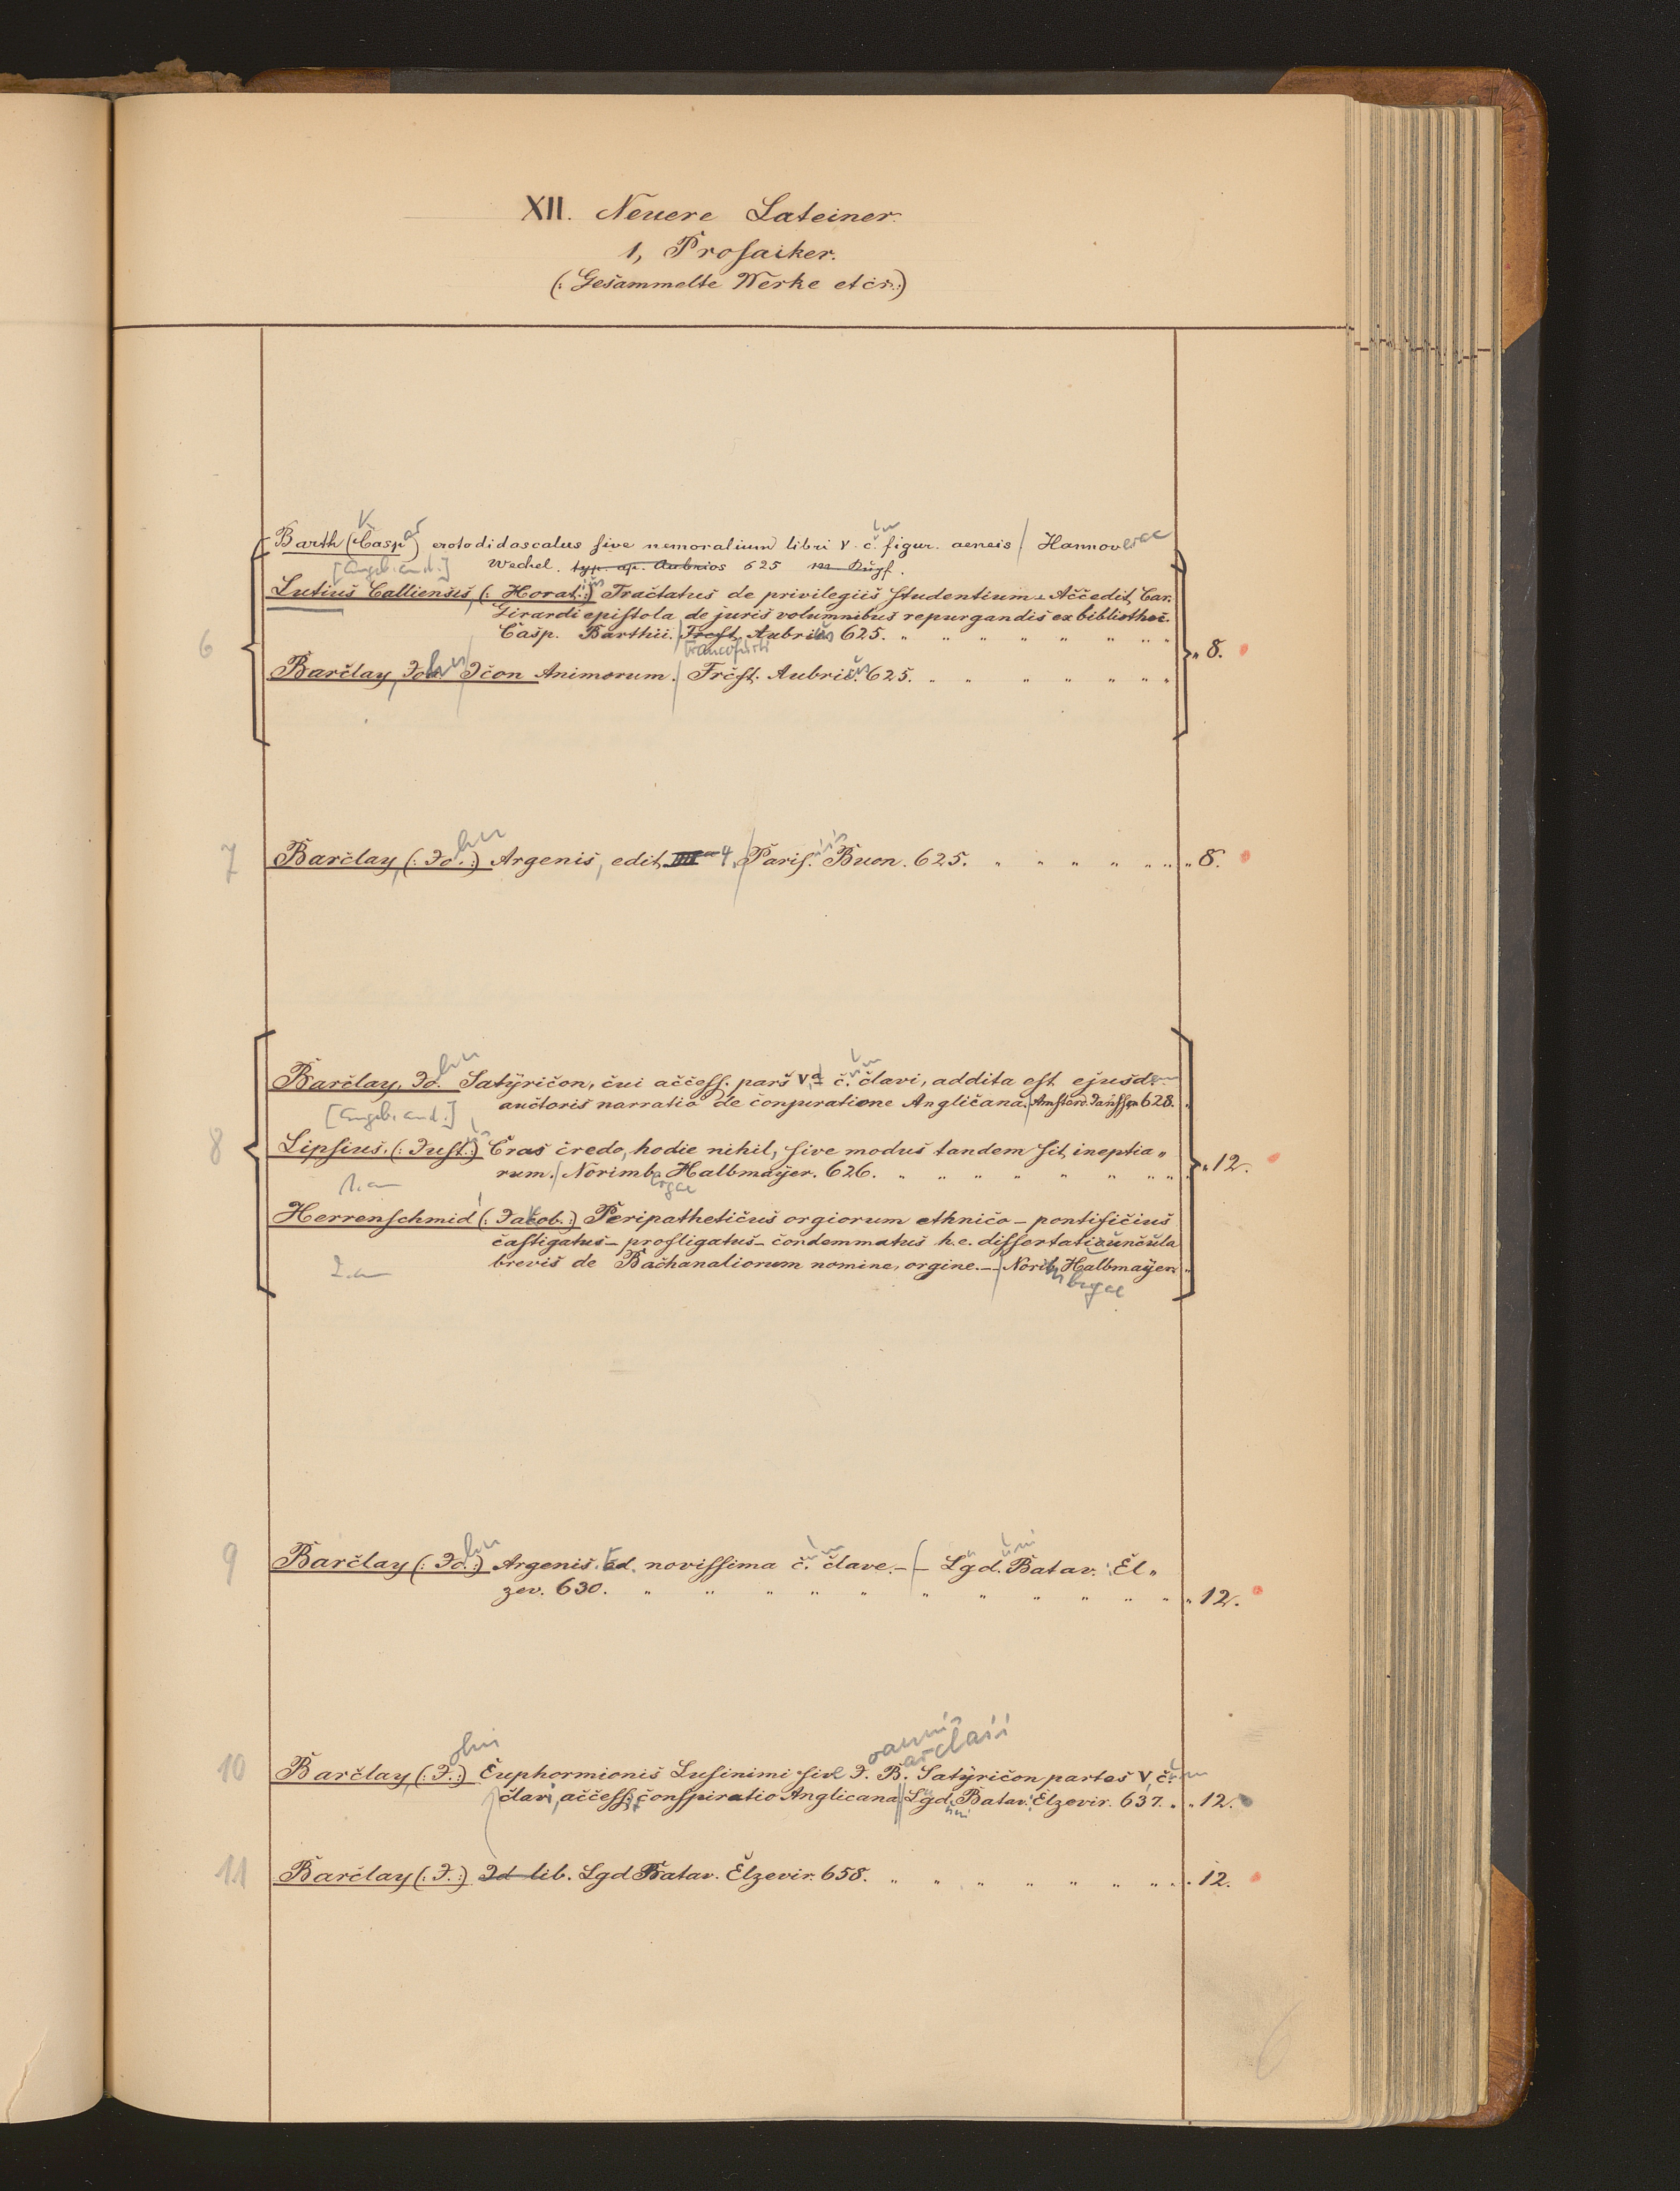 XII. Neuere Lateiner.
1, Prosaiker.
(: Gesammelte Werke etcr.:)
Barth (Caspar) erotodidascalus sive nemoralium libri V. c. figur. aeneis / Hannoverae
[Angeb. and.:] Wechel. typ. ap. Aubrios 625
Lutius Calliensis, (: Horat.:) Tractatus de privilegiis studentium. Accedit, Car.
Girardi epistola de juris volumnibus repurgandis ex bibliothec.
6 Casp. Barthii. Frcft. Aubrius 625. „ 8.
Francofurti
Barclay, John Icon Animorum. / Frcft. Aubrius 625.
7 Barclay, (: Jo.:) hn Argenis, edit. 4. / Paris. iis Buon. 625. „ 8.
Barclay, Jo. hn Satyricon, cui access. pars V.a c. um clavi, addita est ejusdem
[Angeb. and.:] auctoris narratio de conjuratione Anglicana. / Amsterd. Janssen 628.
8 Lipsius. (: Just.:) Cras credo, hodie nihil, sive modus tandem sit ineptia„
rum. / Norimbergae Halbmayer. 626. „ 12.
1. an
Herrenschmid (: Jakob.:) Peripatheticus orgiorum ethnico - pontificius
castigatus - profligatus - condemmatus h. e. dissertatiuncula
2. an brevis de Bachanaliorum nomine, orgine. — / Norib. Halbmayer.
mbergae
9 Barclay (: Jo.:) hn Argenis. Ed. novissima c. um clave. — / — Lgd. Batav. : El„
zev. 630. „ 12.
10 Barclay, (: J.:) ohn Euphormionis Lusinimi sive J. oannis B. arclaii Satyricon partes V, c. um
clavi, access. conspiratio Anglicana. // Lgd. Batav. : Elzevir. 637. „ 12.
11 Barclay (: J.:) Id lib. Lgd Batav. Elzevir. 658. „ 12.
6